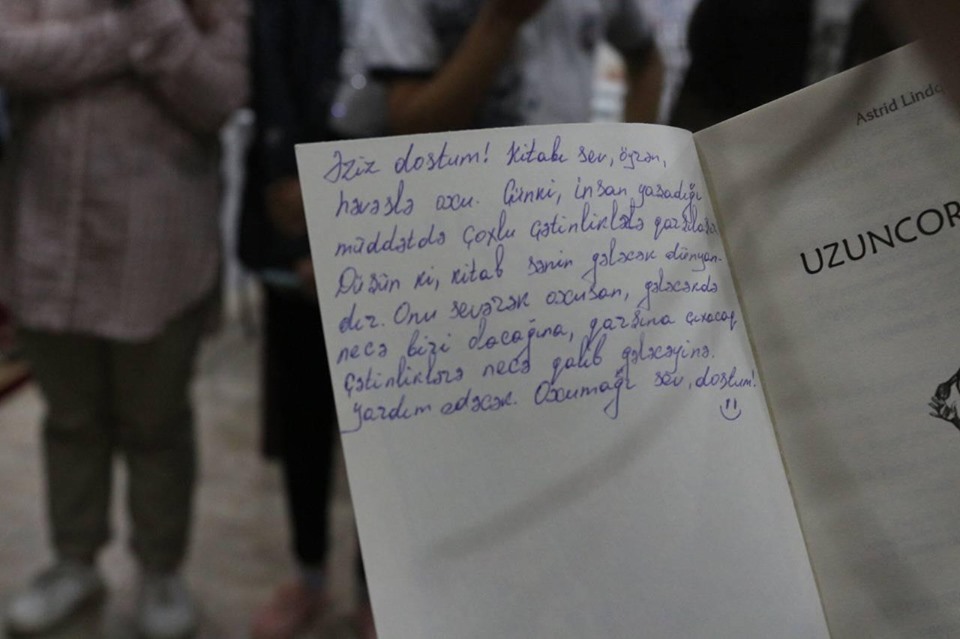 Əziz dostum! Kitabı sev, öyrən,
həvəslə oxu. Çünki, insan yaşadığı
müddətdə çoxlu çətinliklərlə qarşılaşır.
Düşün ki, kitab sənin gələcək dünyan-
dır. Onu sevərək oxusan, gələcəkdə
necə biri olacağına, qarşına çıxacaq
çətinliklərə necə qalib gələcəyinə.
yardım edəcək. Oxumağı sev, dostum!
Astrid Lindg
UZUNCOR